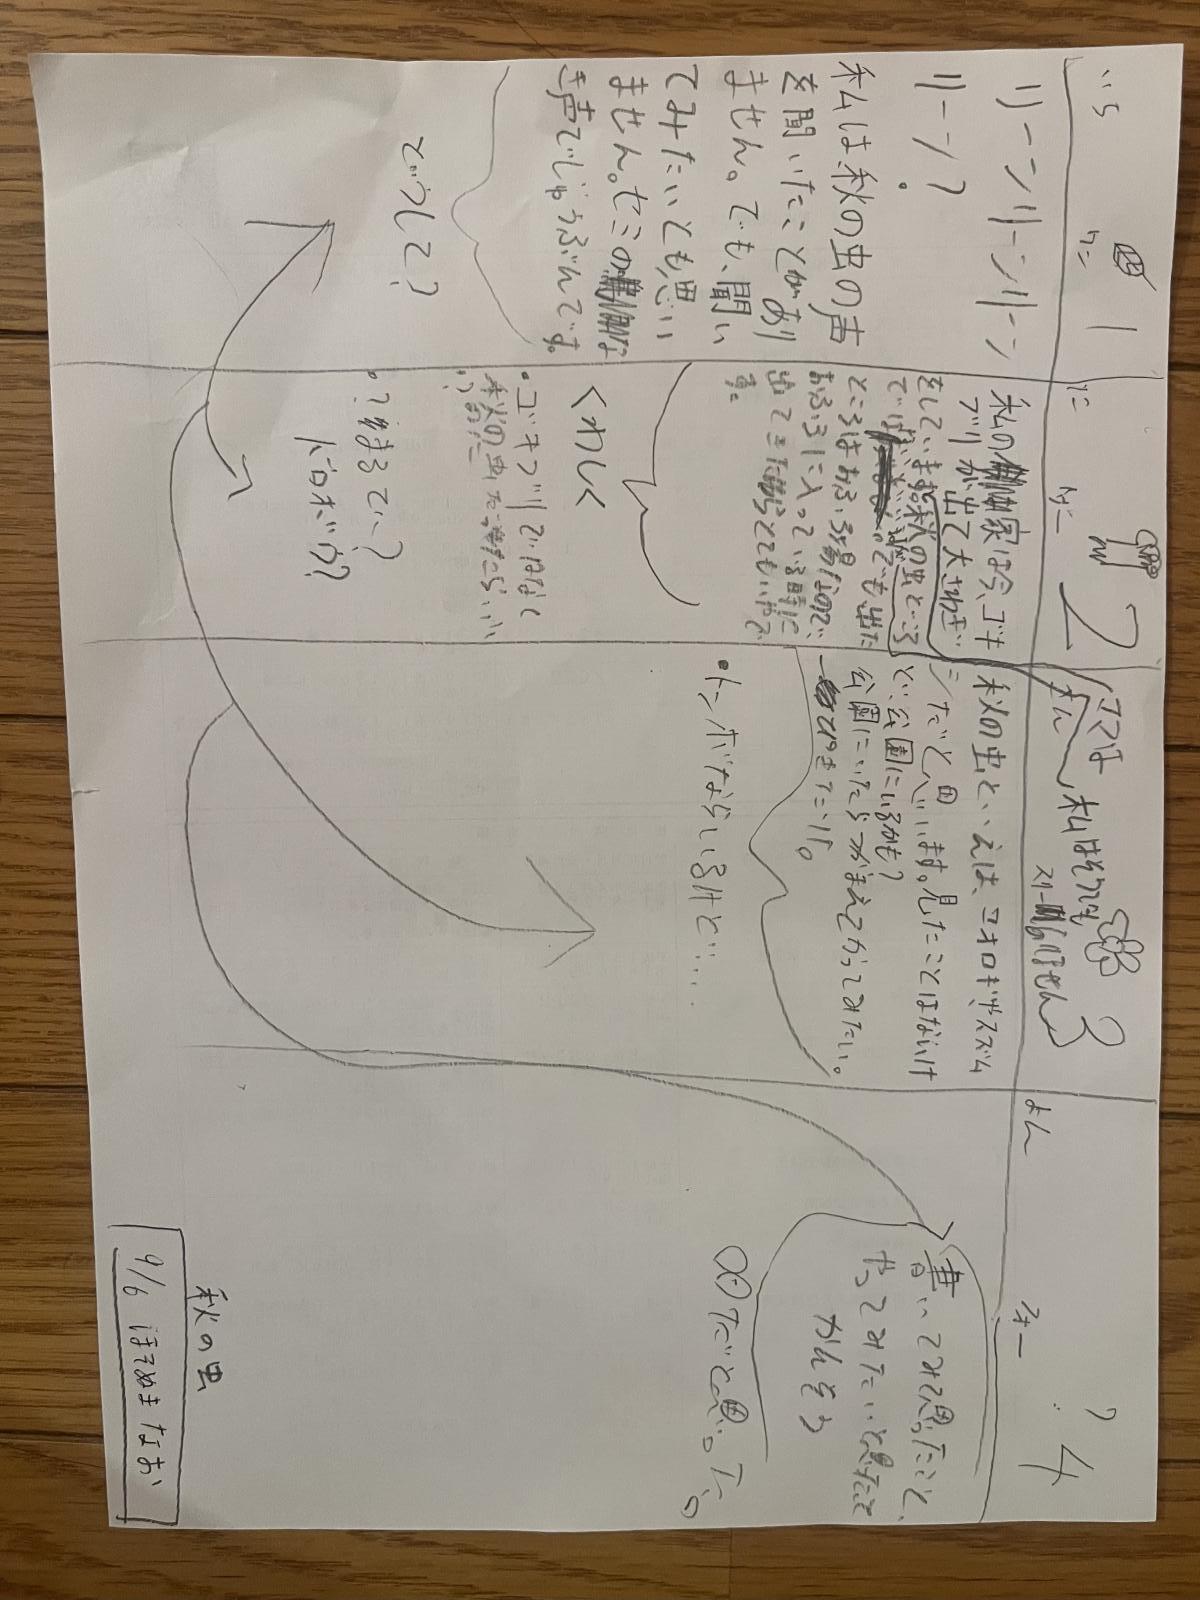 いち
ワン
1
リーンリーンリーン
リーン?
私は秋の虫の声
を聞いたことがあり
ません。でも、聞い
てみたいとも思い
ません。セミのな
き声でじゅうぶんです。
どうして?
に
ツー
2
私の家は今、ゴキ
ブリが出て大さわぎ
をしています。秋の虫どころ
ではない。でも出た
ところはおふろ場なので、
おふろに入っている時に
出てきたらとてもいやで
す。
くわしく
・ゴキブリではなく
秋の虫だったらいい
のに
さん
スリー
3
秋の虫といえば、コオロギやスズム
シだと思います。見たことはないけ
ど、公園にいるかも?
公園にいたらつかまえてかってみたい。
・トンボならいるけど…
よん
フォー
4
書いてみて思ったこと、
やってみたいと思ったこと
かんそう
〇〇だと思った。
秋の虫
9/6